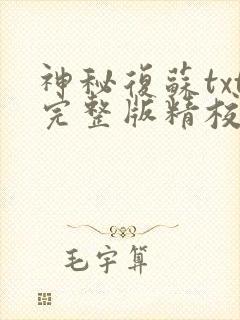 神秘復蘇txt
完整版精校
毛宇算